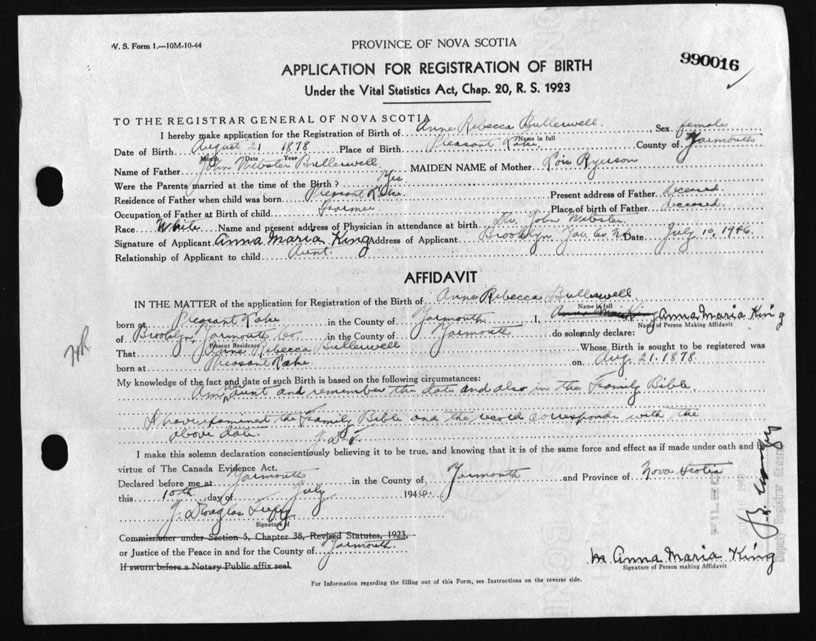 V. S. Form 1.—10M-10-44
PROVINCE OF NOVA SCOTIA
990016
APPLICATION FOR REGISTRATION OF BIRTH
Under the Vital Statistics Act, Chap. 20, R. S. 1923
TO THE REGISTRAR GENERAL OF NOVA SCOTIA
I hereby make application for the Registration of Birth of Anne Rebecca Bullerwell Sex female
Name in full
Date of Birth August 21 1878 Place of Birth Pleasant Lake County of Yarmouth
Month Date Year
Name of Father John Webster Bullerwell MAIDEN NAME of Mother Lois Ryerson
Were the Parents married at the time of the Birth? Yes
Residence of Father when child was born Pleasant Lake Present address of Father deceased
Occupation of Father at Birth of child Farmer Place of birth of Father deceased
Race White Name and present address of Physician in attendance at birth Dr. John Webster
Signature of Applicant Anna Maria King Address of Applicant Brooklyn Yar. Co. N.S. Date July 10, 1946
Relationship of Applicant to child Aunt
AFFIDAVIT
IN THE MATTER of the application for Registration of the Birth of Anne Rebecca Bullerwell
Name in full
born at Pleasant Lake in the County of Yarmouth I, Anna Maria King
Name of Person Making Affidavit
of Brooklyn, Yarmouth Co. in the County of Yarmouth do solemnly declare:
Present Residence
That Anne Rebecca Bullerwell Whose Birth is sought to be registered was
born at Pleasant Lake on Aug. 21. 1878
My knowledge of the fact and date of such Birth is based on the following circumstances:
Am her aunt and remember the date and also in the Family Bible
I have examined the Family Bible and the record corresponds with the
above date. J. D. F.
I make this solemn declaration conscientiously believing it to be true, and knowing that it is of the same force and effect as if made under oath and by
virtue of The Canada Evidence Act.
Declared before me at Yarmouth in the County of Yarmouth and Province of Nova Scotia
this 10th day of July 1946
J. Douglas
Signature of
Commissioner under Section 5, Chapter 38, Revised Statutes, 1923.
or Justice of the Peace in and for the County of Yarmouth
If sworn before a Notary Public affix seal.
M. Anna Maria King
Signature of Person making Affidavit
For Information regarding the filling out of this Form, see Instructions on the reverse side.